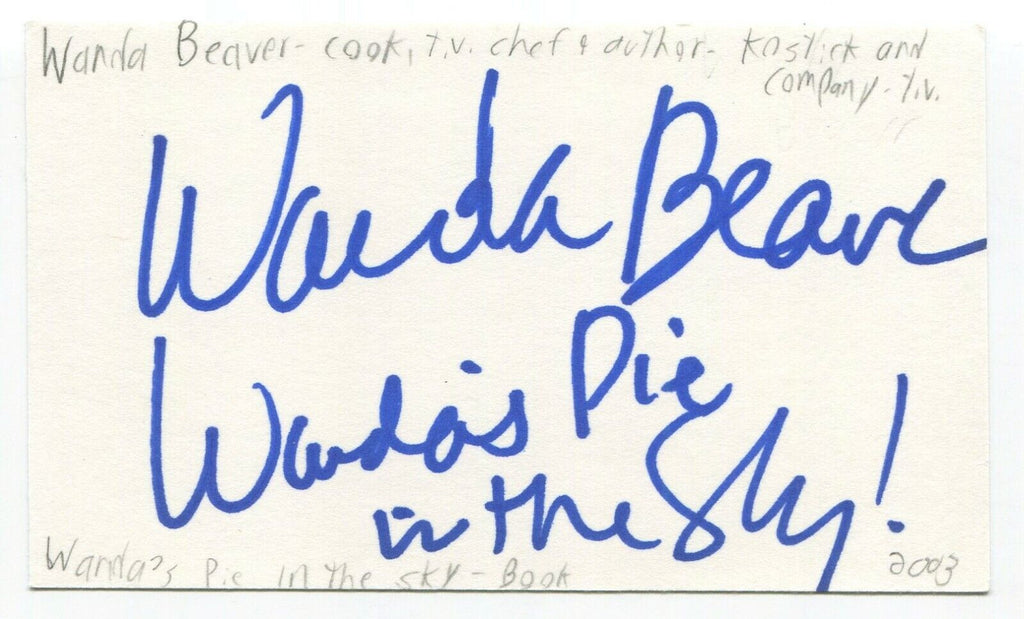 Wanda Beaver - cook, t.v. chef & author - Kostick and
company - t.v.
Wanda Beaver
Wanda's Pie
in the Sky!
Wanda's Pie in the sky - Book
2003